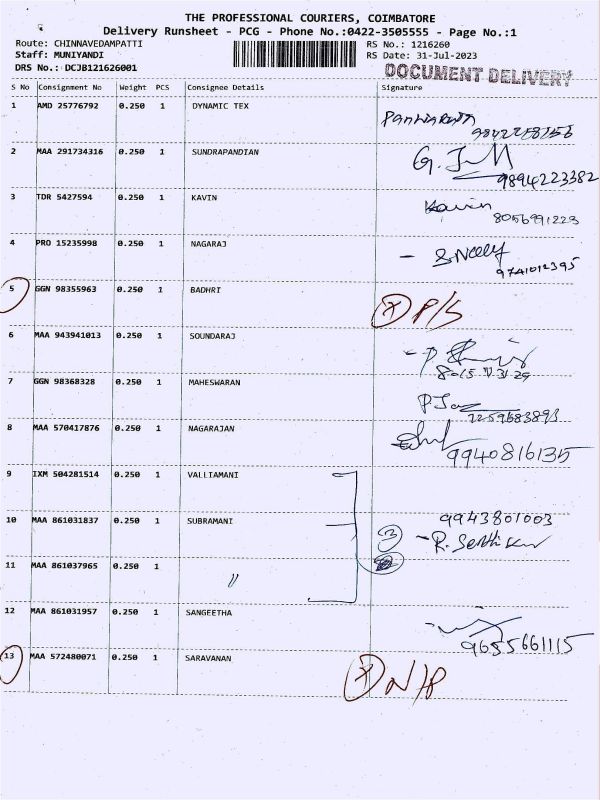 THE PROFESSIONAL COURIERS, COIMBATORE
Delivery Runsheet - PCG - Phone No.:0422-3505555 - Page No.:1
Route: CHINNAVEDAMPATTI RS No.: 1216260
Staff: MUNIYANDI RS Date: 31-Jul-2023
DRS No.: DCJB121626001 DOCUMENT DELIVERY
S No Consignment No Weight PCS Consignee Details Signature
1 AMD 25776792 0.250 1 DYNAMIC TEX
2 MAA 291734316 0.250 1 SUNDRAPANDIAN
9894223382
3 TDR 5427594 0.250 1 KAVIN Kavin
8056991223
4 PRO 15235998 0.250 1 NAGARAJ
9741012395
5 GGN 98355963 0.250 1 BADHRI P/S
6 MAA 943941013 0.250 1 SOUNDARAJ
7 GGN 98368328 0.250 1 MAHESWARAN
8 MAA 570417876 0.250 1 NAGARAJAN
9940816135
9 IXM 504281514 0.250 1 VALLIAMANI
10 MAA 861031837 0.250 1 SUBRAMANI 9943801003
3
11 MAA 861037965 0.250 1 〃
12 MAA 861031957 0.250 1 SANGEETHA
9655661115
13 MAA 572480071 0.250 1 SARAVANAN N/P